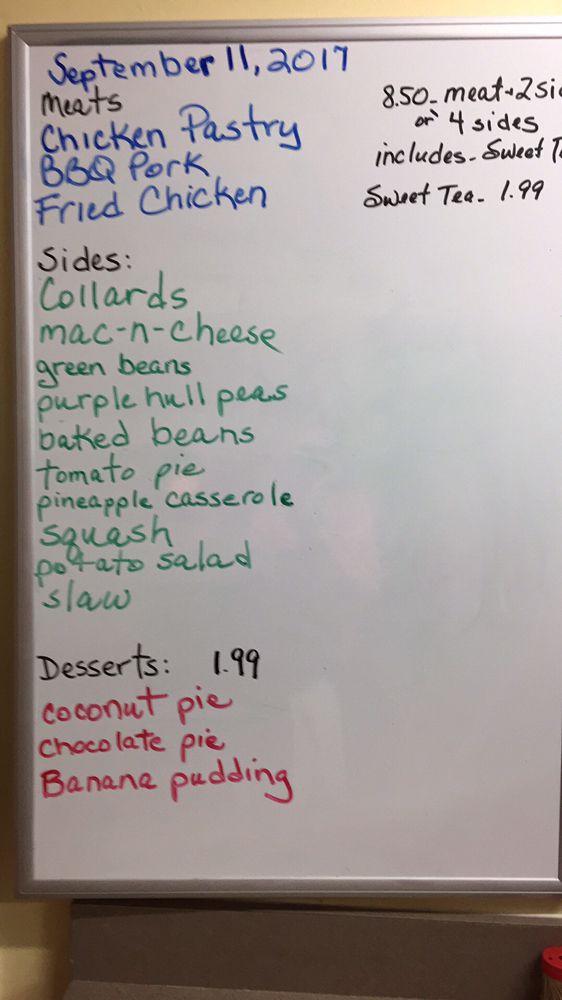 September 11, 2017
Meats
Chicken Pastry
BBQ Pork
Fried Chicken
8.50- meat+2 si
or 4 sides
includes- Sweet T
Sweet Tea- 1.99
Sides:
Collards
mac-n-cheese
green beans
purple hull peas
baked beans
tomato pie
pineapple casserole
squash
potato salad
slaw
Desserts: 1.99
coconut pie
chocolate pie
Banana pudding